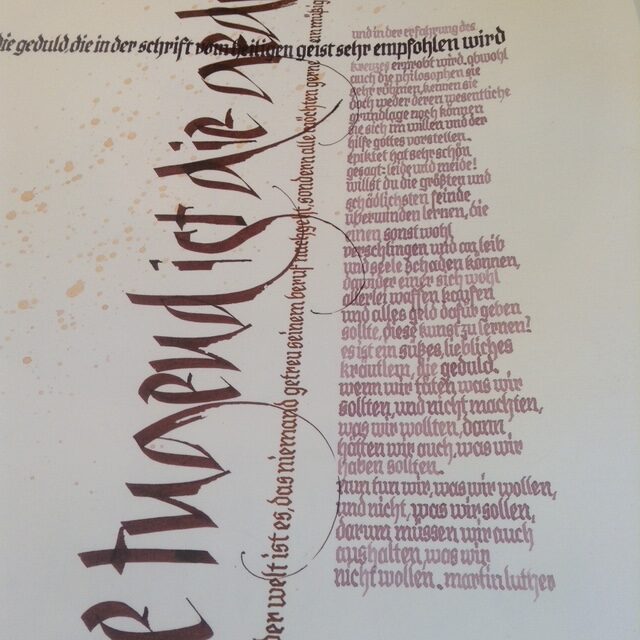 die geduld, die in der schrift vom heiligen geist sehr empfohlen wird
und in der erfahrung des
kreuzes erprobt wird. obwohl
auch die philosophen sie
sehr rühmen, kennen sie
doch weder deren wesentliche
grundlage noch können
sie sich im willen und der
hilfe gottes vorstellen.
epiktet hat sehr schön
gesagt: leide und meide!
willst du die größten und
schädlichsten feinde
überwinden lernen, die
einen sonst wohl
verschlingen und an leib
und seele schaden können,
dawider einer sich wohl
allerlei waffen kaufen
und alles geld dafür geben
sollte, diese kunst zu lernen?
es ist ein süßes, liebliches
kräutlein, die geduld.
wenn wir täten was wir
sollten, und nicht machten,
was wir wollten, dann
hätten wir auch, was wir
haben sollten.
nun tun wir, was wir wollen,
und nicht, was wir sollen,
darum müssen wir auch
aushalten, was wir
nicht wollen. martin luther
tugend ist die
der welt ist es, das niemand getreu seinem beruf nachgeht, sondern alle möchten gerne ein müßig